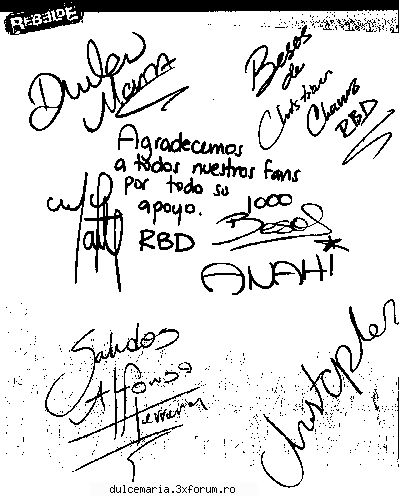 REBELDE
Dulce
Maria
Besos
de
Christian
Chavez
RBD
Agradecemos
a todos nuestros fans
por todo su
apoyo.
RBD
1000
Besos
ANAHI
Saludos
Alfonso
Herrera
Christopher
dulcemaria.3xforum.ro